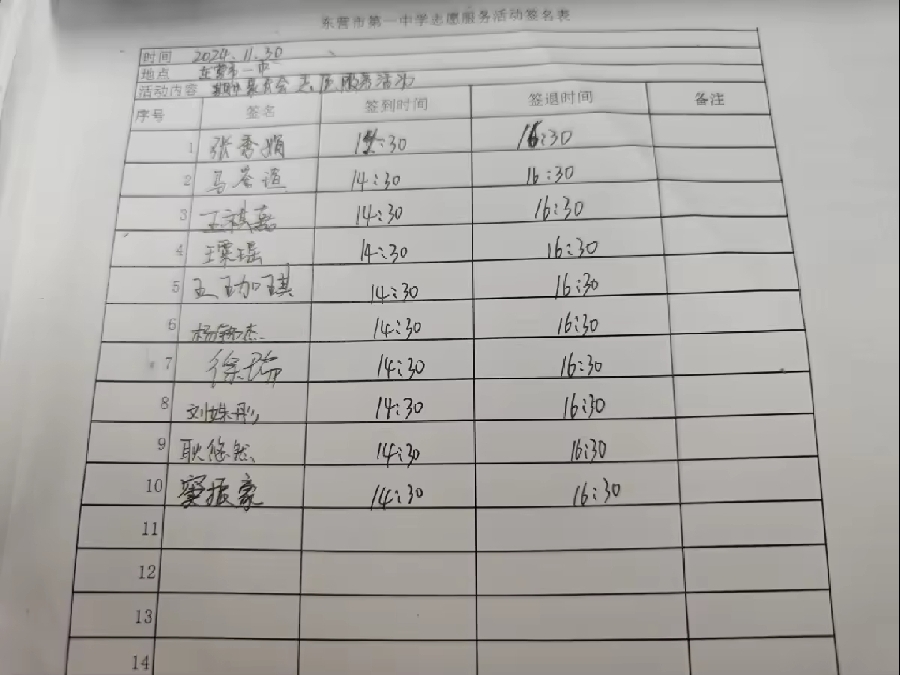 东营市第一中学志愿服务活动签名表
时间 2024.11.30
地点 东营市一中
活动内容 家长会志愿服务活动
序号 签名 签到时间 签退时间 备注
1 张秀娟 14:30 16:30
2 马 14:30 16:30
3 王祺嘉 14:30 16:30
4 王霂瑶 14:30 16:30
5 王珈琪 14:30 16:30
6 杨 杰 14:30 16:30
7 徐瑞 14:30 16:30
8 刘姝彤 14:30 16:30
9 耿悠然 14:30 16:30
10 振豪 14:30 16:30
11
12
13
14